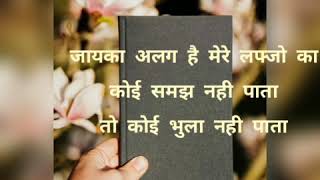 जायका अलग है मेरे लफ्जो का
कोई समझ नही पाता
तो कोई भुला नही पाता